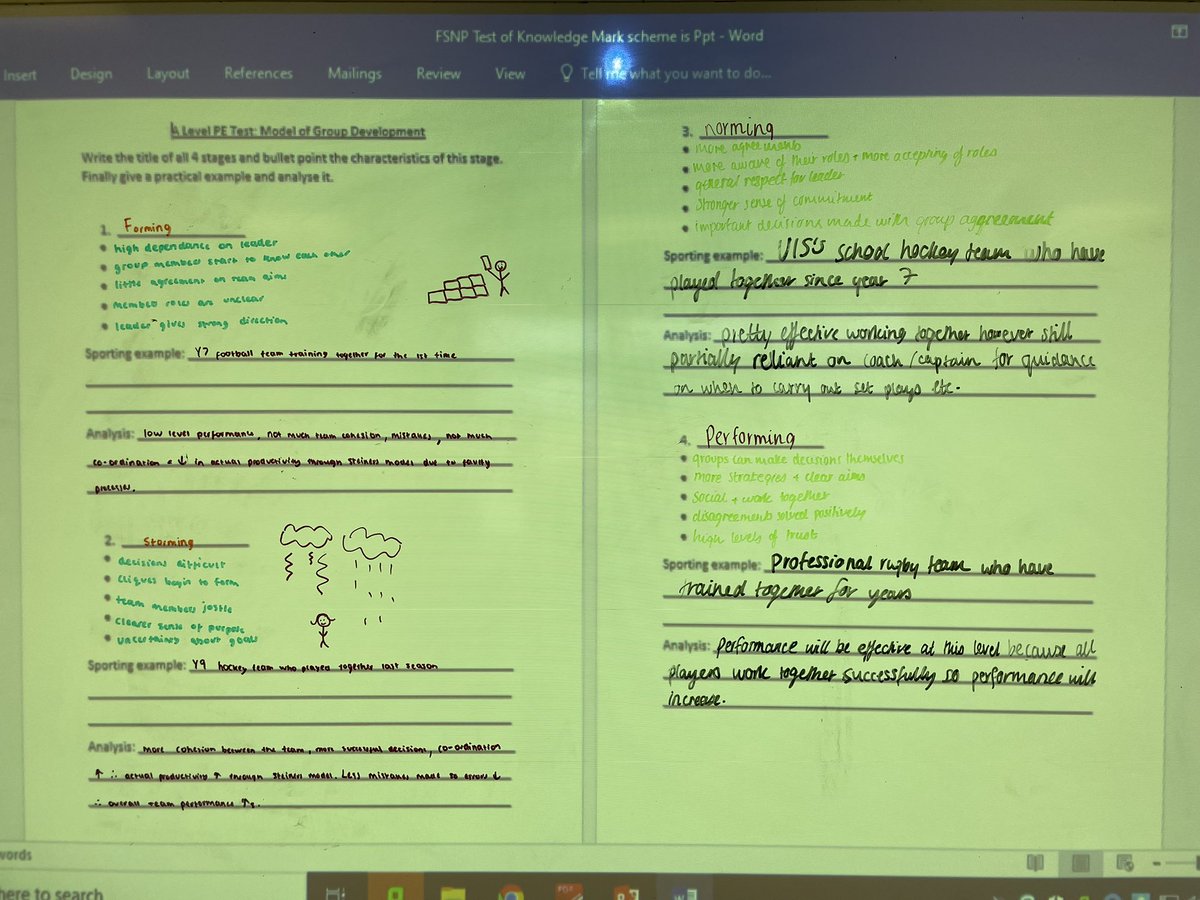 FSNP Test of Knowledge Mark scheme is Ppt - Word
Insert Design Layout References Mailings Review View Tell me what you want to do...
A Level PE Test: Model of Group Development
Write the title of all 4 stages and bullet point the characteristics of this stage.
Finally give a practical example and analyse it.
1. Forming
high dependance on leader
group members start to know each other
little agreement on team aims
member roles are unclear
leader gives strong direction
Sporting example: Y7 football team training together for the 1st time
Analysis: low level performance, not much team cohesion, mistakes, not much
co-ordination = ↓ in actual productivity through steiners model due to faulty
processes.
2. Storming
decisions difficult
cliques begin to form
team members jostle
clearer sense of purpose
uncertainty about goals
Sporting example: Y9 hockey team who played together last season
Analysis: more cohesion between the team, more successful decisions, co-ordination
↑ ∴ actual productivity ↑ through steiners model. Less mistakes made so errors ↓
∴ overall team performance ↑s.
3. norming
more agreements
more aware of their roles + more accepting of roles
general respect for leader
Stronger sense of commitment
important decisions made with group aggreement
Sporting example: V1S's school hockey team who have
played together since year 7
Analysis: pretty effective working together however still
partially relliant on coach/captain for guidance
on when to carry out set plays etc.
4. Performing
groups can make decisions themselves
more strategies + clear aims
Social + work together
disagreements solved positively
high levels of trust
Sporting example: Professional rugby team who have
trained together for years
Analysis: performance will be effective at this level because all
players work together successfully so performance will
increase.
words
here to search